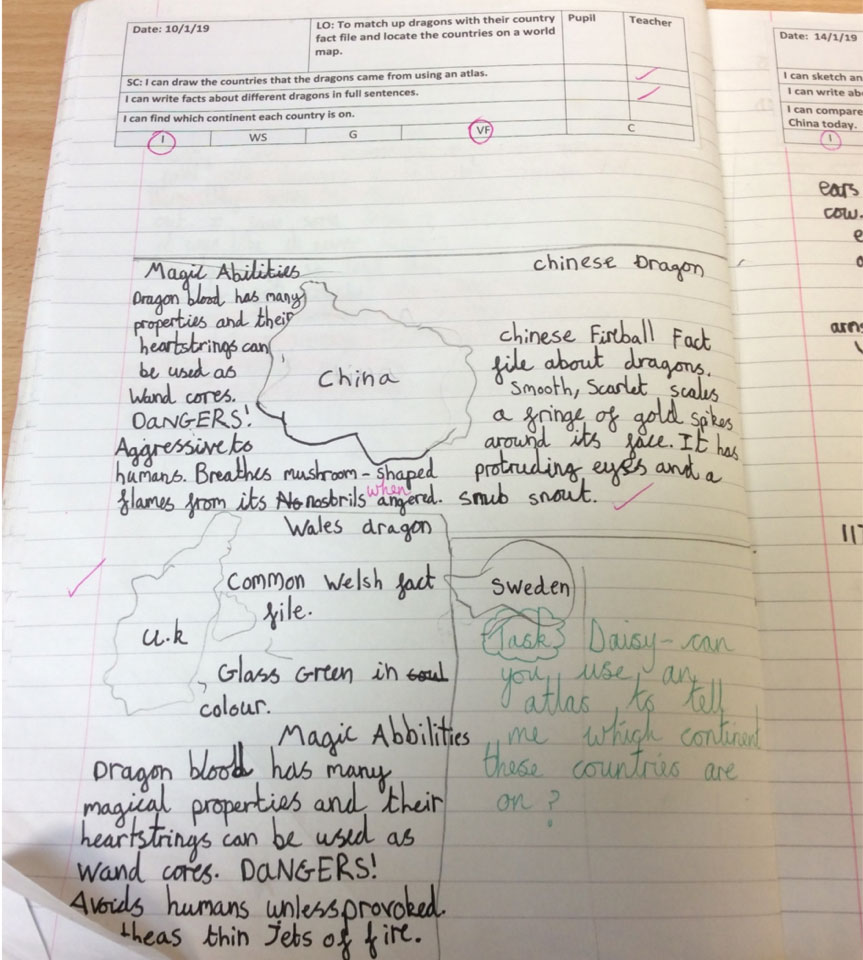 Date: 10/1/19
LO: To match up dragons with their country
fact file and locate the countries on a world
map.
Pupil
Teacher
SC: I can draw the countries that the dragons came from using an atlas.
I can write facts about different dragons in full sentences.
I can find which continent each country is on.
I
WS
G
VF
C
Magic Abilities
Dragon blood has many
properties and their
heartstrings can
be used as
Wand cores.
DaNGERS!
Aggressive to
humans. Breathes mushroom-shaped
flames from its No nosbrils when angered.
China
chinese Dragon
chinese Fireball Fact
file about dragons.
Smooth, Scarlet scales
a fringe of gold spikes
around its face. It has
protruding eyes and a
snub snout.
Wales dragon
Common Welsh fact
file.
u.k
Glass Green in soul
colour.
Magic Abbilities
Dragon blood has many
magical properties and their
heartstrings can be used as
Wand cores. DaNGERS!
Avoids humans unless provoked.
theas thin Jets of fire.
Sweden
Task Daisy - can
you use an
atlas to tell
me which continent
these countries are
on?
Date: 14/1/19
I can sketch an
I can write ab
I can compare
China today.
I
ears
cow.
e
arms